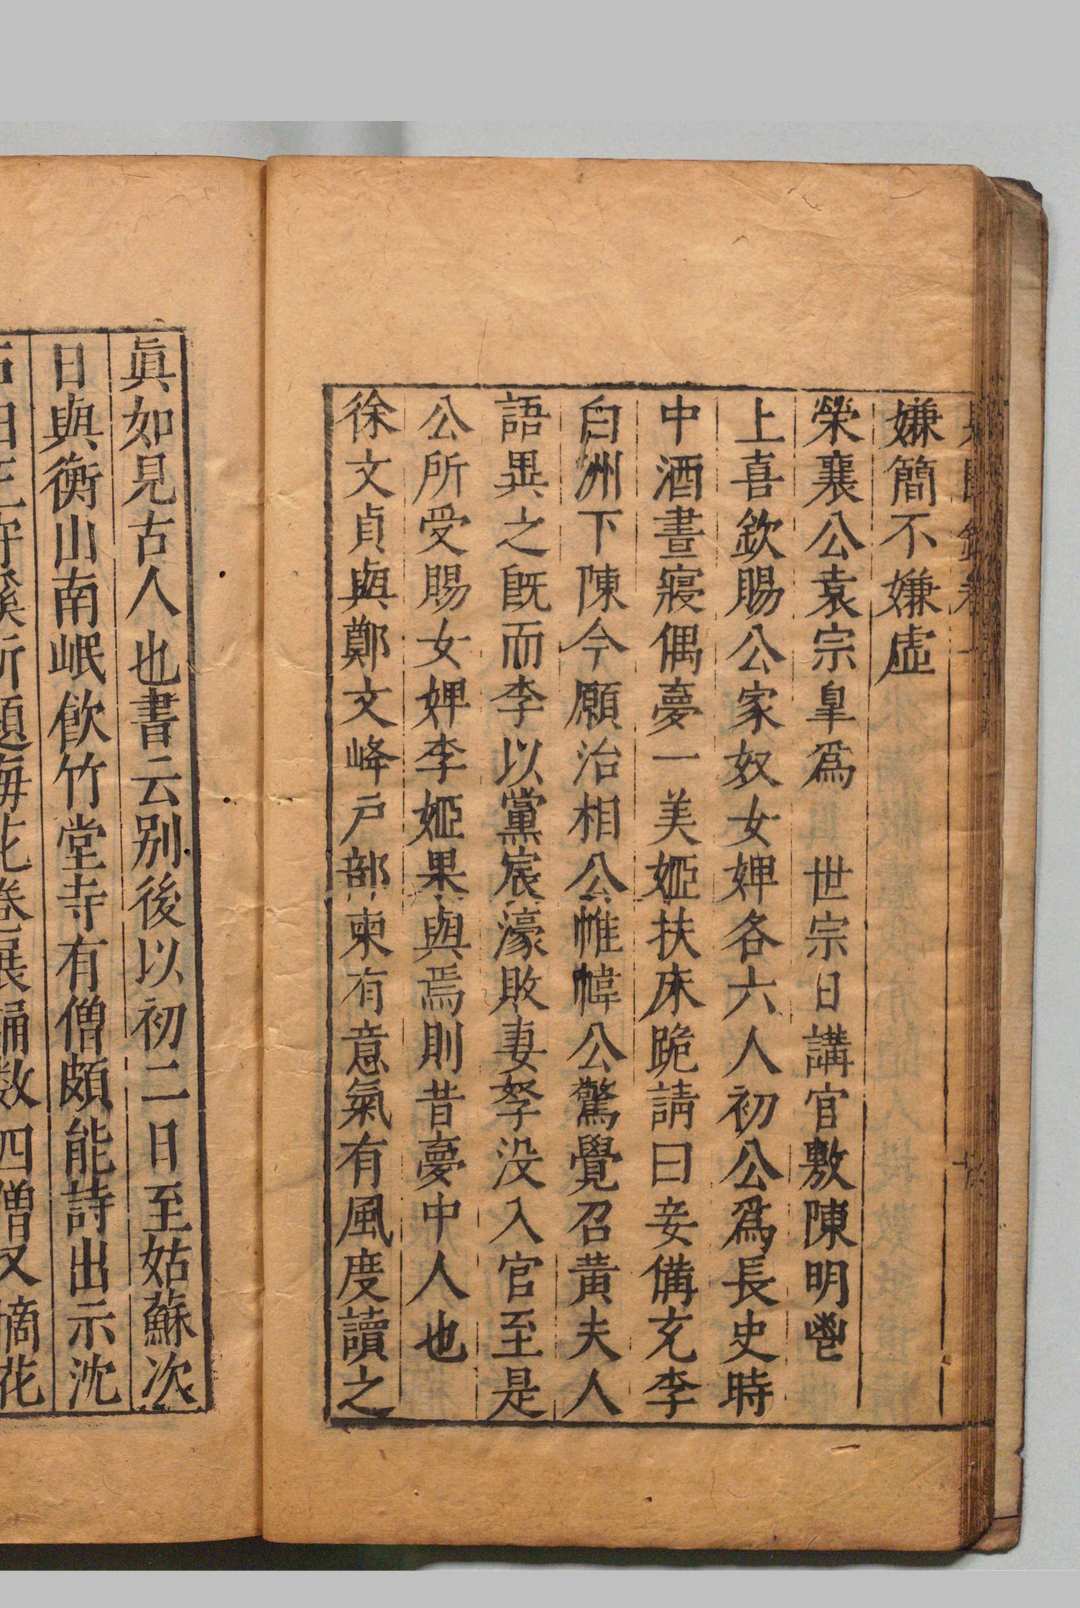 嫌簡不嫌虛
榮襄公袁宗皐爲　世宗日講官敷陳明鬯
上喜欽賜公家奴女婢各六人初公爲長史時
中酒晝寢偶夢一美婭扶床跪請曰妾備充李
白洲下陳今願治相公帷幃公驚覺召黃夫人
語異之旣而李以黨宸濠敗妻孥没入官至是
公所受賜女婢李婭果與焉則昔夢中人也
徐文貞與鄭文峰戶部柬有意氣有風度讀之
眞如見古人也書云别後以初二日至姑蘇次
日與衡山南岷飮竹堂寺有僧頗能詩出示沈
石田王守溪所題梅花卷展誦数四僧又摘花